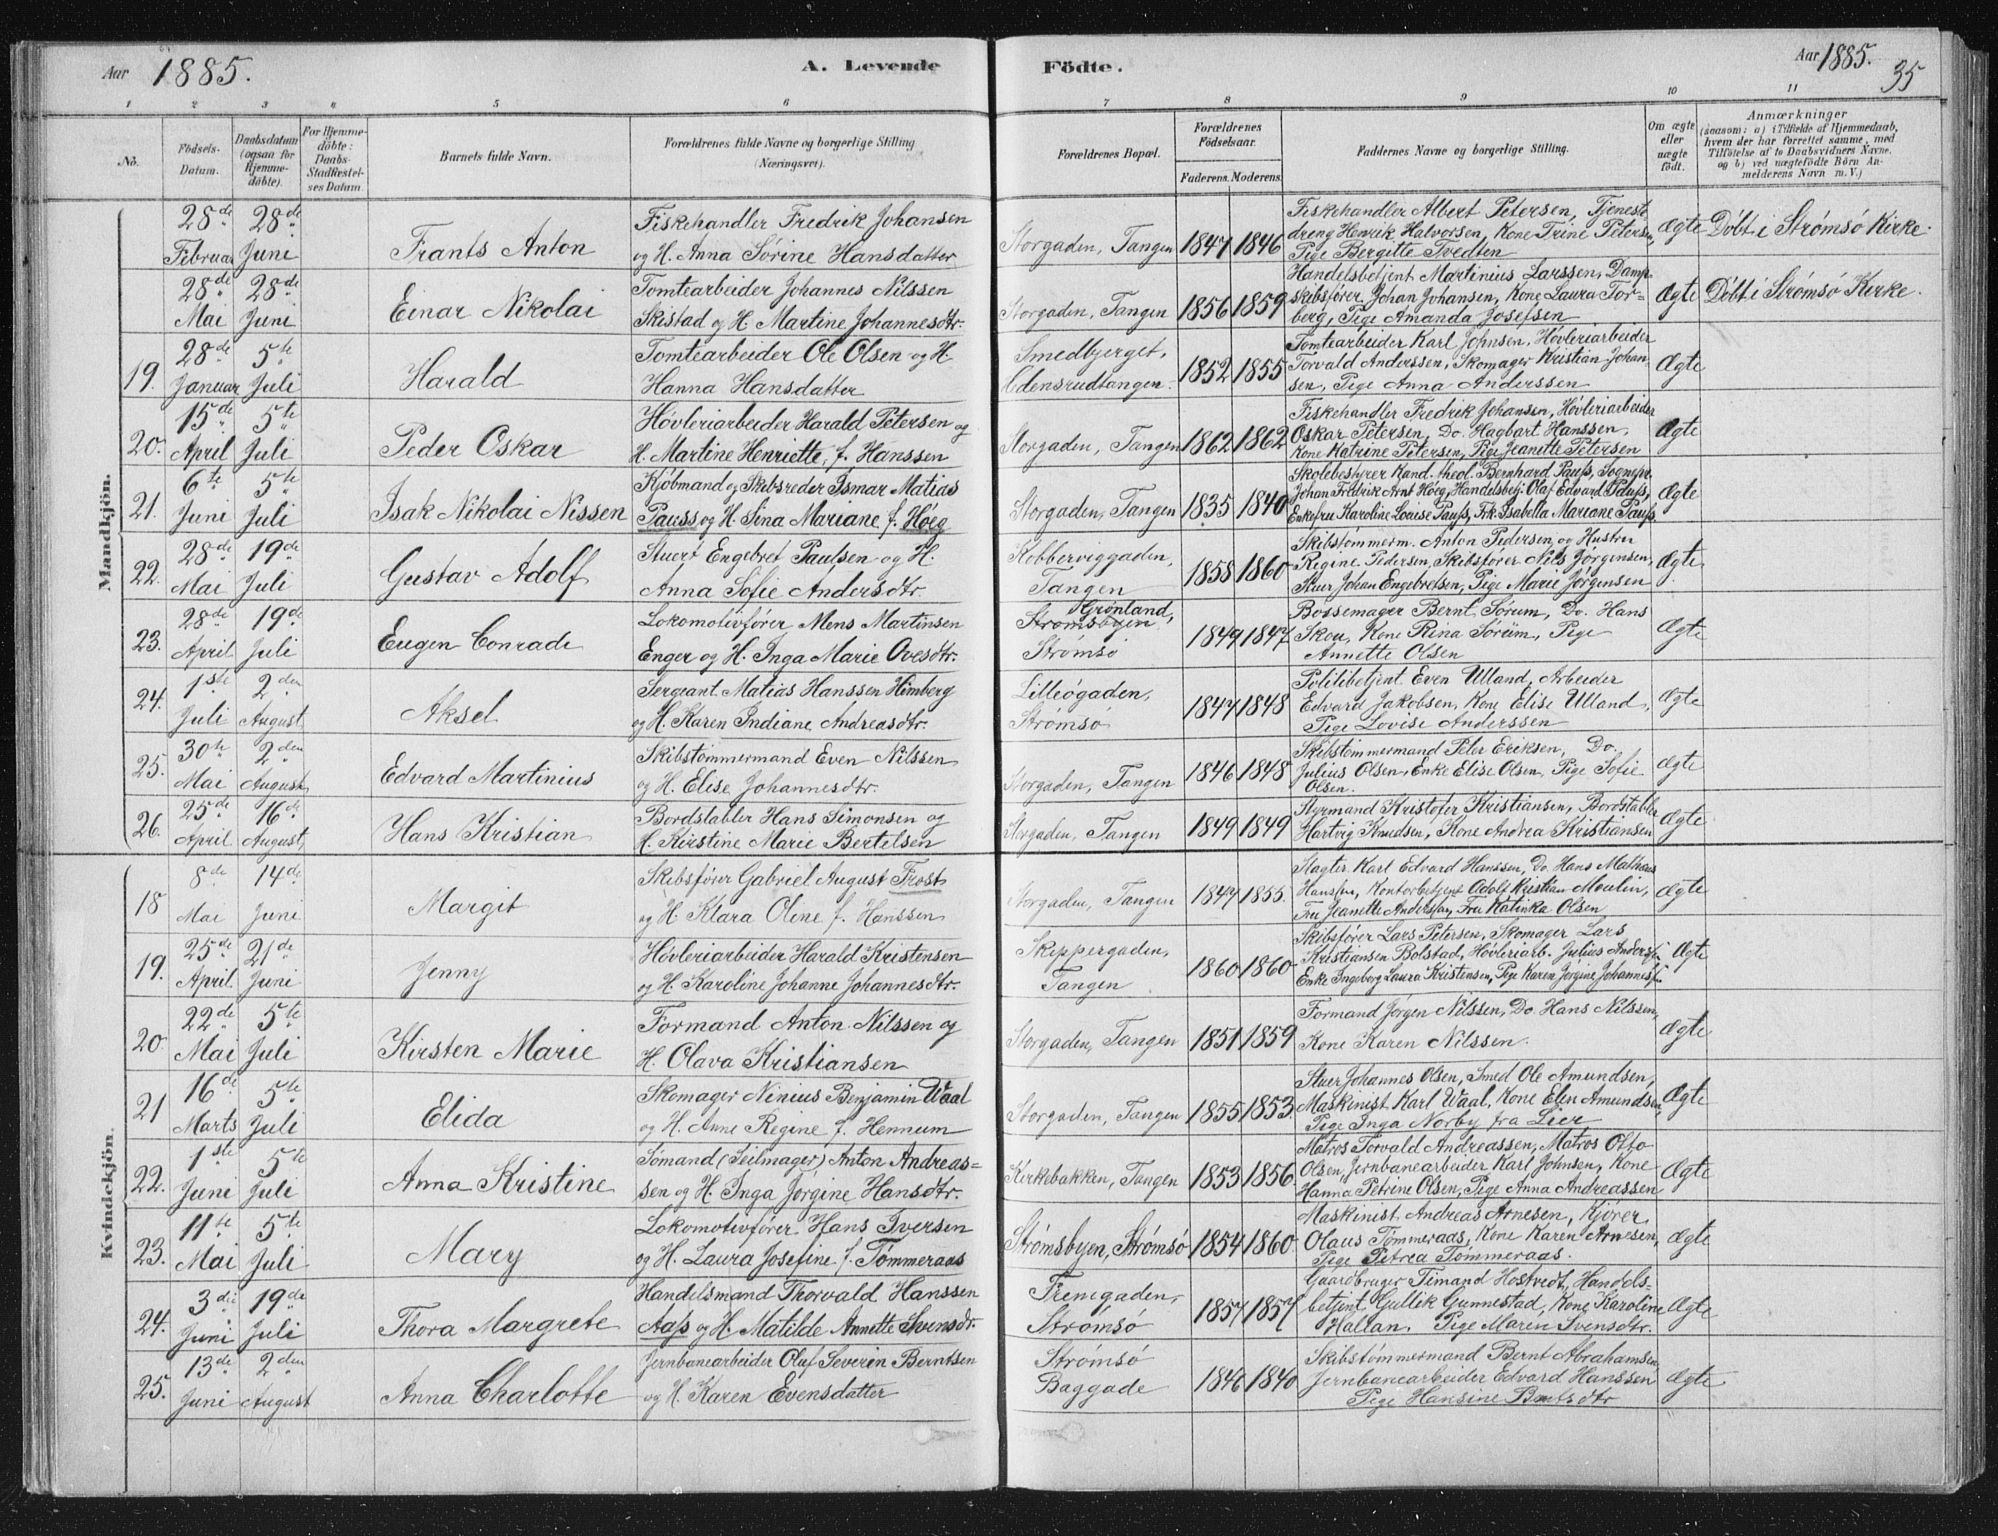 Aar 1885.
A. Levende
Födte.
Aar 1885.
35
1 2 3 4 5 6 7 8 9 10 11
No.
Födsels-Datum.
Daabsdatum (ogsaa for Hjemmedöbte).
For Hjemmedöbte: Daabs-Stadfestelses Datum.
Barnets fulde Navn.
Forældrenes fulde Navne og borgerlige Stilling (Næringsvei).
Forældrenes Bopæl.
Forældrenes Födselsaar.
Faderens. Moderens.
Faddernes Navne og borgerlige Stilling.
Om ægte eller uægte født.
Anmærkninger
(saasom: a) i Tilfælde af Hjemmedaab, hvem der har forrettet samme, med Tilföielse af to Daabsvidners Navne, og b) ved uægtefödte Börn Anmelderens Navn m. V.)
Mandkjön.
28de Februar 28de Juni Frants Anton
Fiskehandler Fredrik Johansen
og H. Anna Sørine Hansdatter
Storgaden, Tangen 1847 1846
Fiskehandler Albert Petersen, Tjeneste
dreng Henrik Halvorsen, Kone Trine Petersen,
Pige Bergitte Tvedten
Ægte Døbt i Strømsø Kirke.
28de Mai 28de Juni Einar Nikolai
Tomtearbeider Johannes Nilssen
Skistad og H. Martine Johannesdtr.
Storgaden, Tangen 1856 1859
Handelsbetjent Martinius Larssen, Damp-
skibsfører Johan Johansen, Kone Laura Tor-
berg, Pige Amanda Josefsen
Ægte Døbt i Strømsø Kirke.
19. 28de Januar 5te Juli Harald
Tomtearbeider Ole Olsen og H
Hanna Hansdatter
Smedbjerget, 1852 1855
Tomtearbeider Karl Johnsen, Høvleriarbeider
Torvald Anderssen, Skomager Kristian Johan-
sen, Pige Anna Anderssen
Ægte
20. 15de April 5te Juli Peder Oskar
Høvleriarbeider Harald Petersen og
H. Martine Henriette, f. Hanssen
Storgaden, Tangen 1862 1862
Fiskehandler Fredrik Johansen, Høvleriarbeider
Oskar Petersen, Do. Hagbart Hanssen,
Kone Katrine Petersen, Pige Jeanette Petersen
Ægte
21. 6te Juni 5te Juli Isak Nikolai Nissen
Kjøbmand og Skibsreder Ismar Matias
Pauss og H. Sina Mariane f. Høeg
Storgaden, Tangen 1835 1840
Skolebestyrer Kand. theol. Bernhard Pauss, Sognepr.
Johan Fredrik Arnt Høeg, Handelsbetj. Olaf Edvard Pauss,
Enkefru Karoline Louise Pauss, Frk. Isabella Mariane Pauss.
Ægte
22. 28de Mai 19de Juli Gustav Adolf
Stuert Engebret Paulsen og H.
Anna Sofie Andersdtr.
Kobberviggaden, Tangen 1858 1860
Skibstømmerm. Anton Pedersen, og Hustru
Regine Pedersen, Skibsfører Nils Jørgensen,
Stuer Johan Engebretsen, Pige Marie Jørgensen
Ægte
23. 28de April 19de Juli Eugen Conradi
Lokomotivfører Mens Martinsen
Enger og H. Inga Marie Ovesdtr.
Grønland, Strømsbyen, Strømsø 1849 1847
Bossemager Bernt Sørum, Do. Hans
Skou, Kone Rina Sørum, Pige
Annette Olsen
Ægte
24. 1ste Juli 2den August Aksel
Sergeant Matias Hanssen Himberg
og H. Karen Indiane Andreasdtr.
Lilleøgaden, Strømsø 1847 1848
Politibetjent Even Ulland, Arbeider
Edvard Jakobsen, Kone Elise Ulland,
Pige Lovise Anderssen
Ægte
25. 30te Mai 2den August Edvard Martinius
Skibstømmermand Even Nilssen
og H. Elise Johannesdtr.
Storgaden, Tangen 1846 1848
Skibstømmermand Peter Eriksen, Do.
Julius Olsen, Enke Elise Olsen, Pige Sofie
Olsen.
Ægte
26. 25de April 16de August Hans Kristian
Bordstabler Hans Simonsen og
H. Kirstine Marie Bertelsen
Storgaden, Tangen 1849 1849
Styrmand Kristofer Kristiansen, Bordstabler
Hartvig Knudsen, Kone Andrea Kristiansen
Ægte
Kvindekjön.
18 8de Mai 14de Juni Margit
Skibsfører Gabriel August Frost
og H. Klara Oline f. Hanssen
Storgaden, Tangen 1847 1855.
Slagter Karl Edvard Hanssen, Do. Hans Mathæus
Hanssen, Kontorbetjent Adolf Kristian Moulin,
Fru Jeanette Anderssen, Fru Katinka Olsen
Ægte
19. 25de April 21de Juni Jenny
Høvleriarbeider Harald Kristensen
og H. Karoline Johanne Johannesdtr.
Skippergaden, Tangen 1860 1860
Skibsfører Lars Petersen, Skomager Lars
Kristiansen Bolstad, Høvleriarb. Julius Anderss.
Enke Ingeborg Laura Kristensen, Pige Karen Jørgine Johanness.
Ægte
20. 22de Mai 5te Juli Kirsten Marie
Formand Anton Nilssen og
H. Olava Kristiansen
Storgaden, Tangen 1851 1859
Formand Jørgen Nilssen, Do. Hans Nilssen,
Kone Karen Nilssen.
Ægte
21 16de Marts 5te Juli Elida
Skomager Ninius Benjamin Waal
og H. Anne Regine f. Hennum
Storgaden, Tangen 1855 1853.
Stuer Johannes Olsen, Smed Ole Amundsen,
Maskinist Karl Waal, Kone Elen Amundsen,
Pige Inga Norby fra Lier
Ægte
22. 1ste Juni 5te Juli Anna Kristine
Sømand (Seilmager) Anton Andreas-
sen og H. Inga Jørgine Hansdtr.
Kirkebakken, Tangen 1853 1856
Matros Torvald Andreassen, Matros Otto
Olsen, Jernbanearbeider Karl Johnsen, Kone
Hanna Petrine Olsen, Pige Anna Andreassen
Ægte
23. 11te Mai 5te Juli Mary
Lokomotivfører Hans Iversen
og H. Laura Josefine f. Tømmeraas
Strømsbyen, Strømsø 1854 1860
Maskinist Andreas Arnesen, Kjører
Olaus Tømmeraas, Kone Karen Arnesen,
Pige Petrea Tømmeraas.
Ægte
24. 3die Juni 19de Juli Thora Margrete
Handelsmand Thorvald Hanssen
Aass og H. Matilde Annette Svensdtr.
Strømsø 1857 1857
Gaardbruger Timand Hostvedt, Handels-
betjent Gullik Gunnestad, Kone Karoline
Hallan, Pige Maren Svensdtr.
Ægte
25. 13de Juni 2den August Anna Charlotte
Jernbanearbeider Olaf Severin Berntsen
og H. Karen Evensdatter
Strømsø Baggade 1846 1840
Skibstømmermand Bernt Abrahamsen,
Jernbanearbeider Edvard Hanssen
Pige Hansine Berntsdtr
Ægte